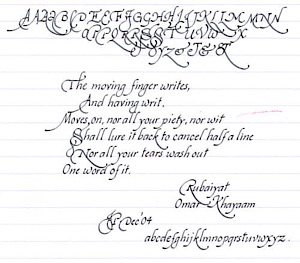 The moving finger writes,
And having writ,
Moves, on, nor all your piety, nor wit
Shall lure it back to cancel half a line
Nor all your tears wash out
One word of it.
Rubaiyat
Omar Khayaam
Dec'04
abcdefghijklmnopqrstuvwxyz.